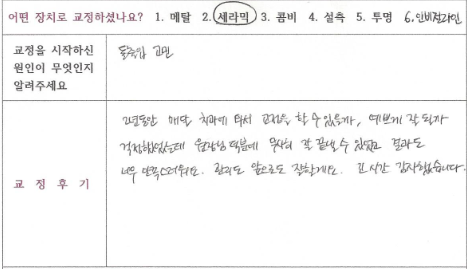 어떤 장치로 교정하셨나요? 1. 메탈 2. 세라믹 3. 콤비 4. 설측 5. 투명 6. 인비절라인
교정을 시작하신
원인이 무엇인지
알려주세요
돌출입 고민
교 정 후 기
2년동안 매달 치과에 와서 교정을 할 수 있을까, 예쁘게 잘 될까
걱정했었는데 원장님 덕분에 무사히 잘 끝낼 수 있었고 결과도
너무 만족스러워요. 관리도 앞으로도 잘할게요. 긴 시간 감사했습니다.